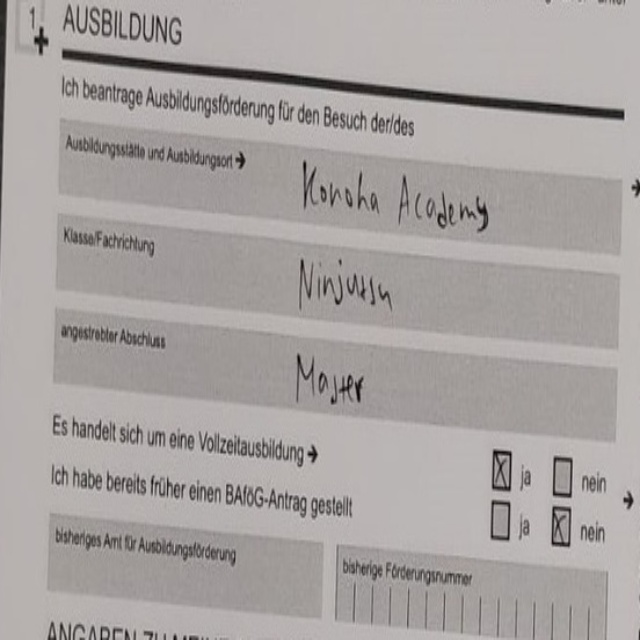 1
AUSBILDUNG
Ich beantrage Ausbildungsförderung für den Besuch der/des
Ausbildungsstätte und Ausbildungsort → Konoha Academy
Klasse/Fachrichtung Ninjutsu
angestrebter Abschluss Master
Es handelt sich um eine Vollzeitausbildung → ☒ ja ☐ nein
Ich habe bereits früher einen BAföG-Antrag gestellt ☐ ja ☒ nein
bisheriges Amt für Ausbildungsförderung bisherige Förderungsnummer
ANGABEN ZU